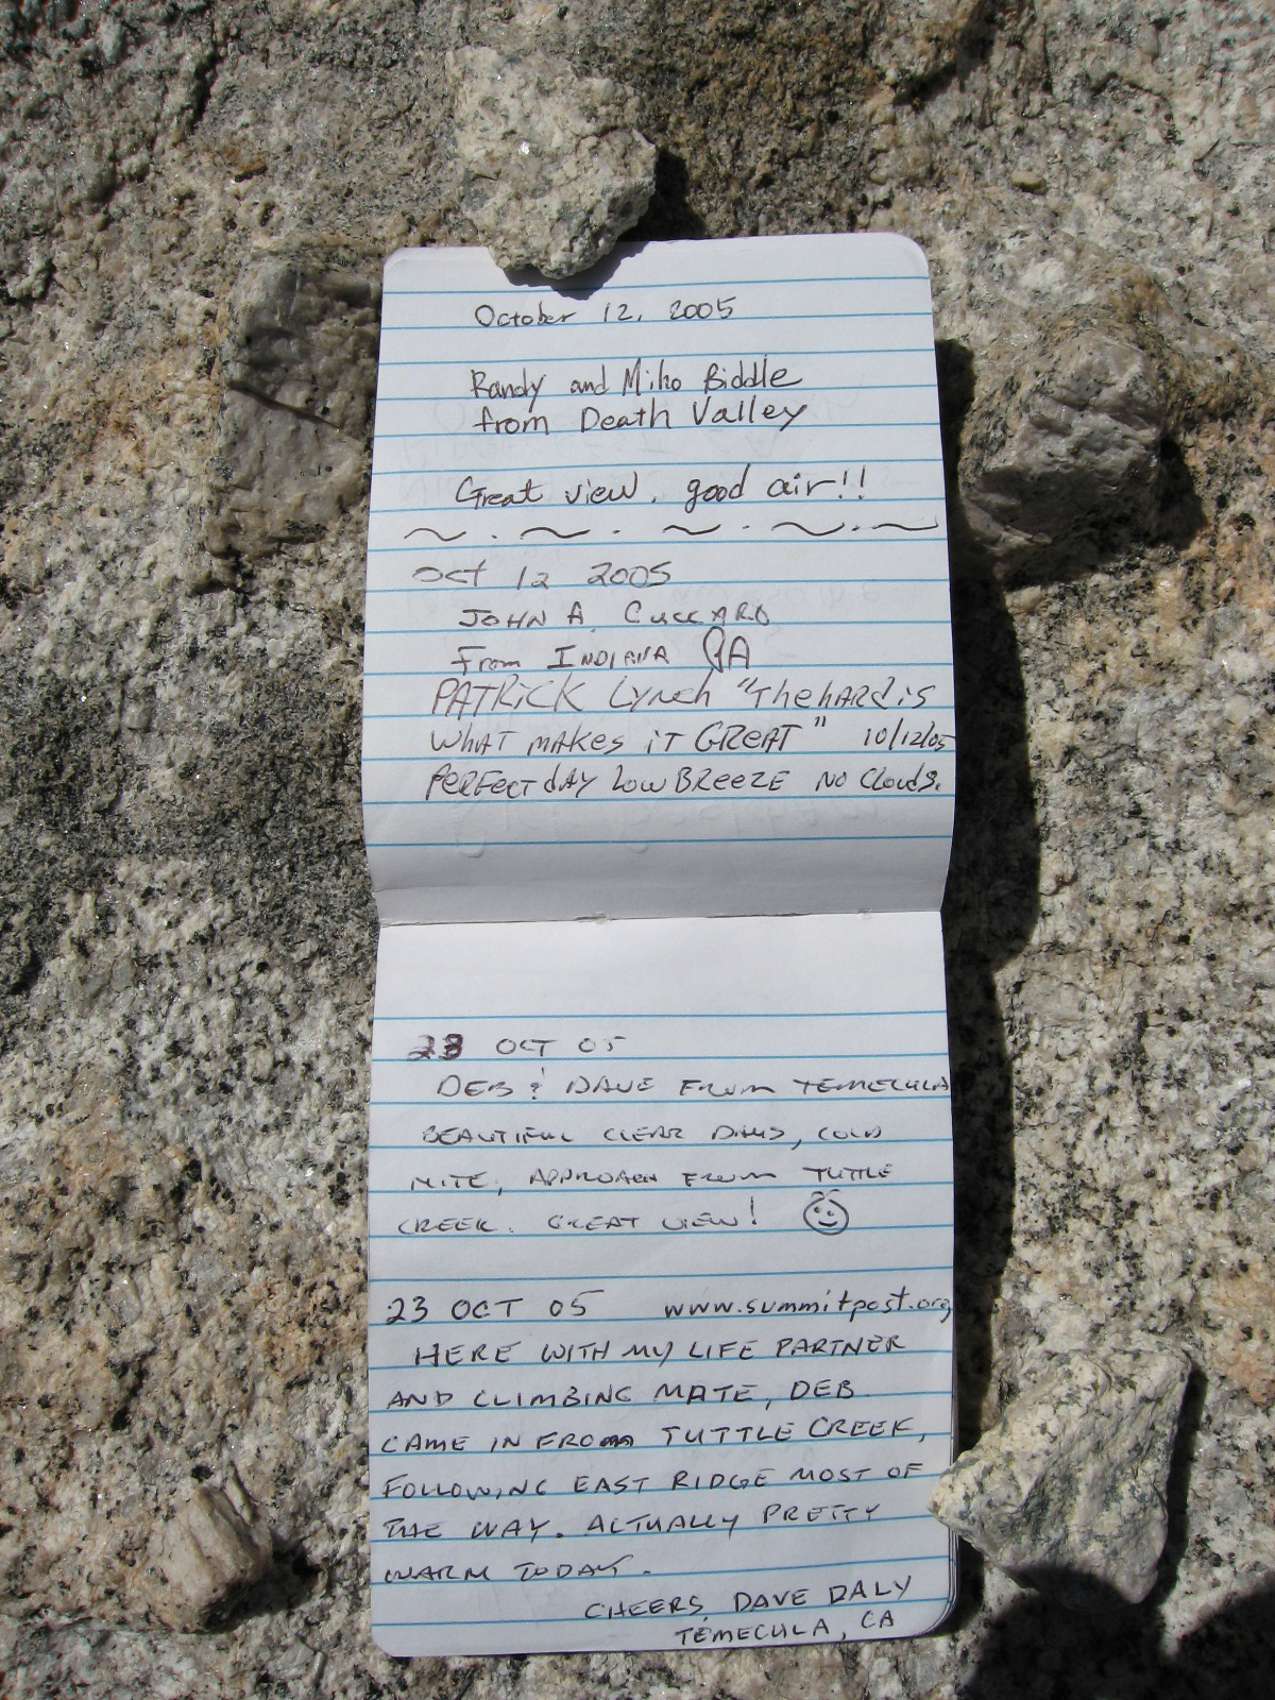 October 12, 2005
Randy and Miho Biddle
from Death Valley
Great view, good air!!
Oct 12 2005
JOHN A.
From INDIANA
PATRICK Lynch "The hARd is
WHAT MAKES iT GREAT" 10/12/05
PERFECT dAY LOW BREEZE NO Clouds.
23 OCT 05
DEB & DAVE FROM TEMECULA
BEAUTIFUL CLEAR DAYS, COLD
NITE, APPROACH FROM TUTTLE
CREEK. GREAT VIEW!
23 OCT 05 www.summitpost.org
HERE WITH MY LIFE PARTNER
AND CLIMBING MATE, DEB
CAME IN FROM TUTTLE CREEK,
FOLLOWING EAST RIDGE MOST OF
THE WAY. ACTUALLY PRETTY
WARM TODAY.
CHEERS, DAVE DALY
TEMECULA, CA